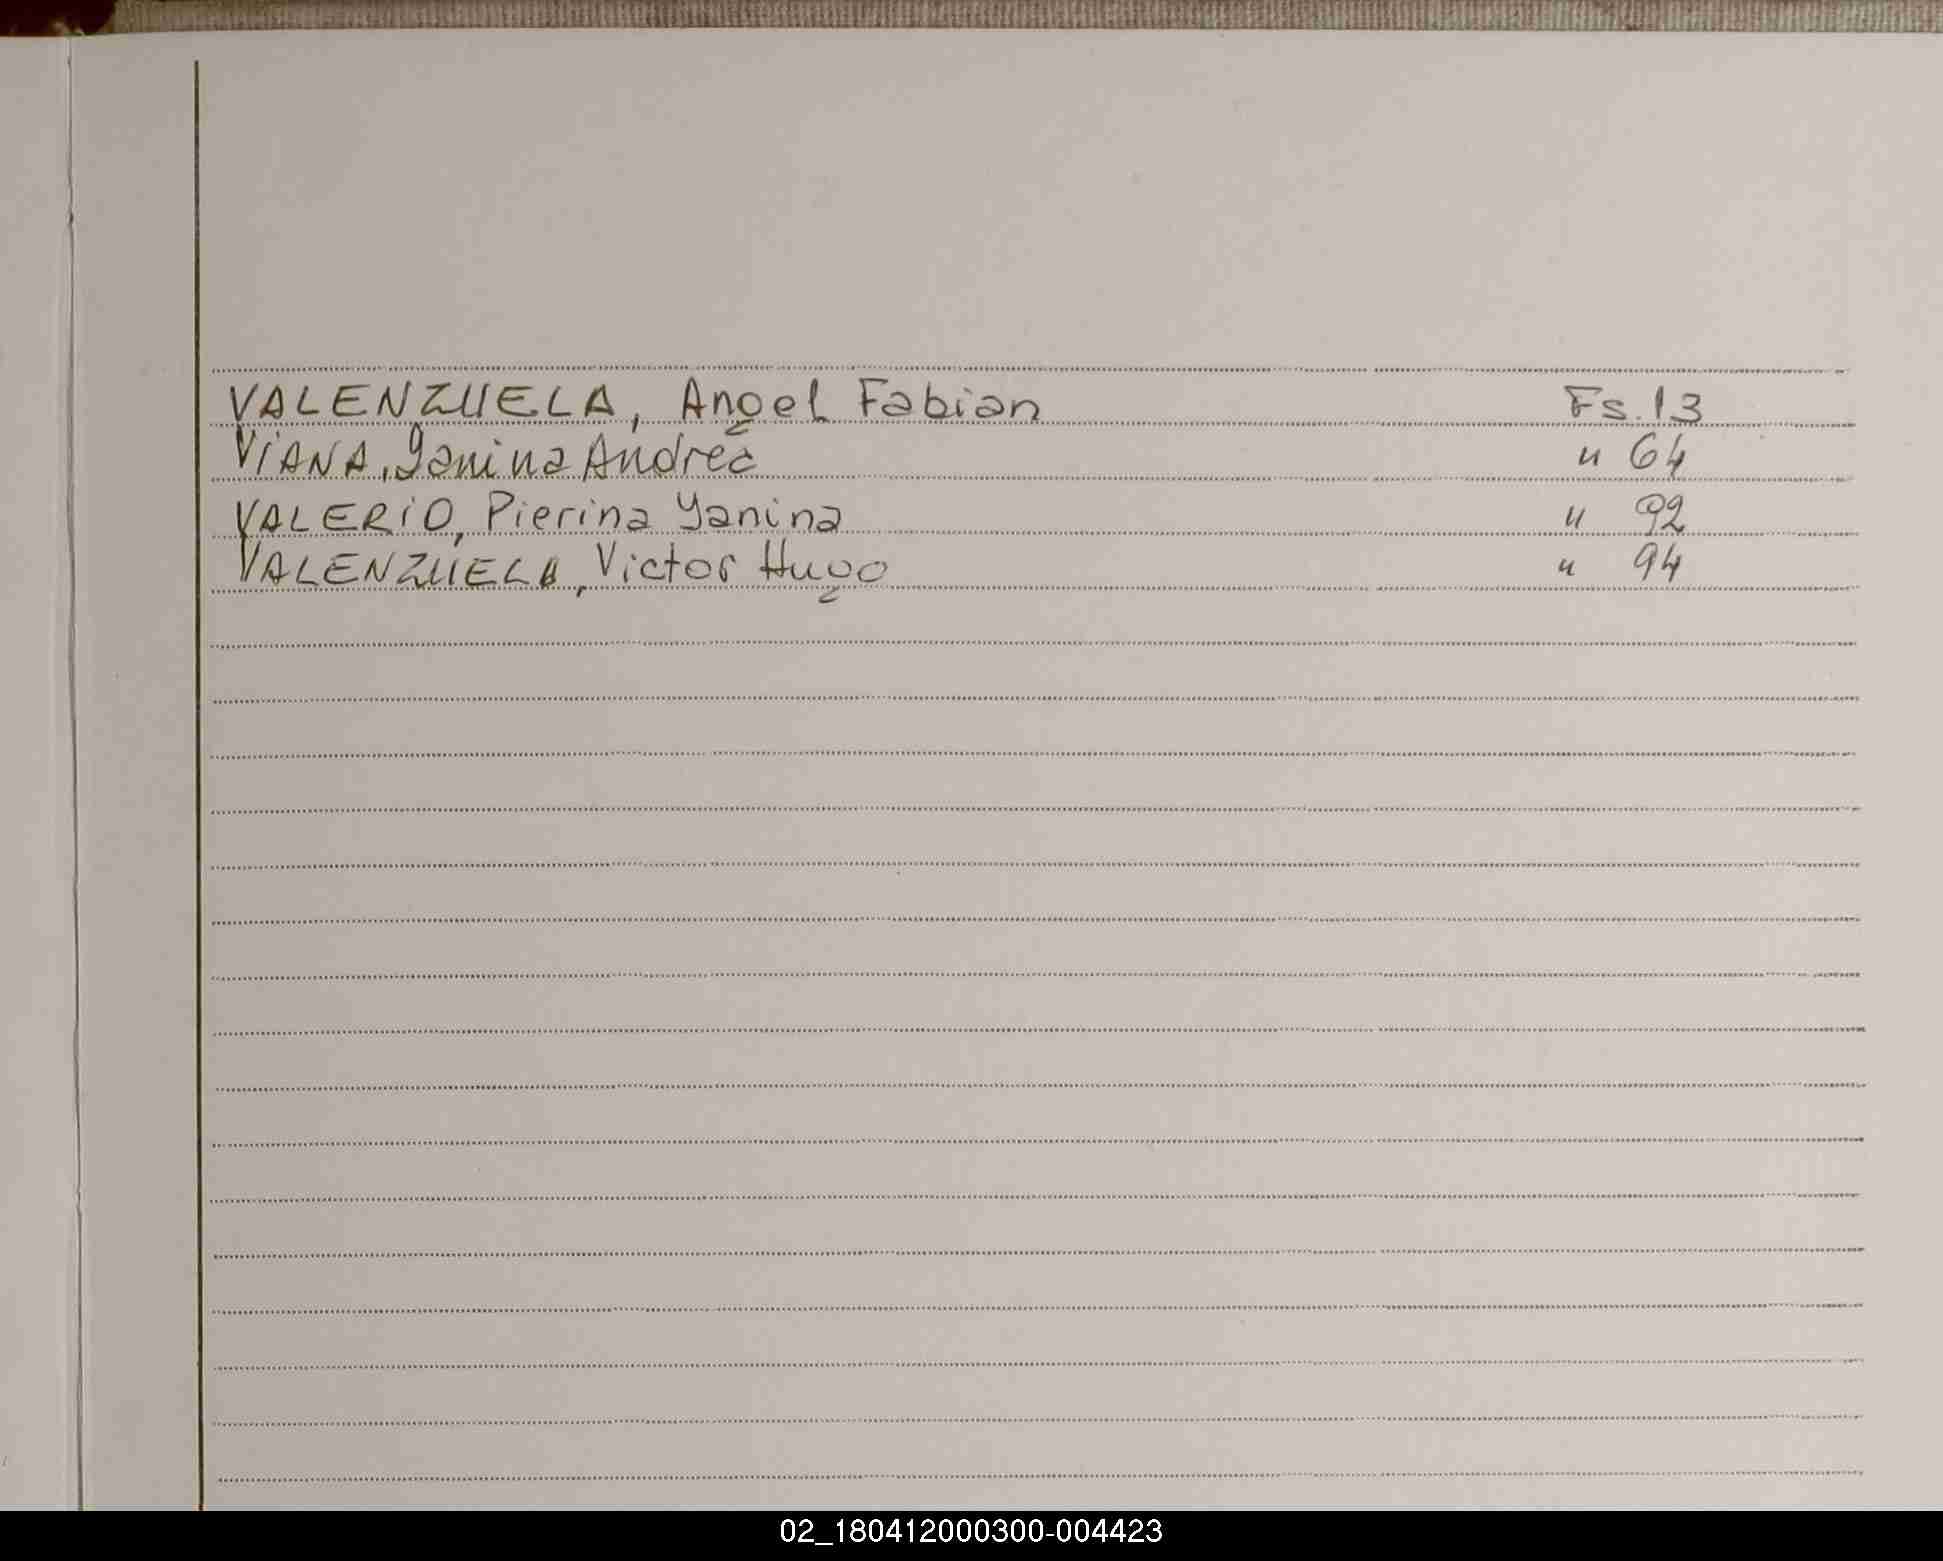 VALENZUELA, Angel Fabian Fs. 13
VIANA, Yanina Andrea " 64
VALERIO, Pierina Yanina " 92
VALENZUELA, Victor Hugo " 94
02_180412000300-004423